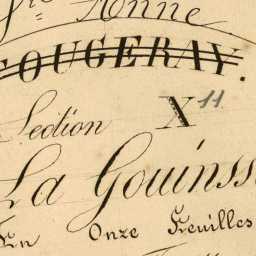 Ste Anne
FOUGERAY.
Section X 11
La Gouinss
En Onze Feuilles